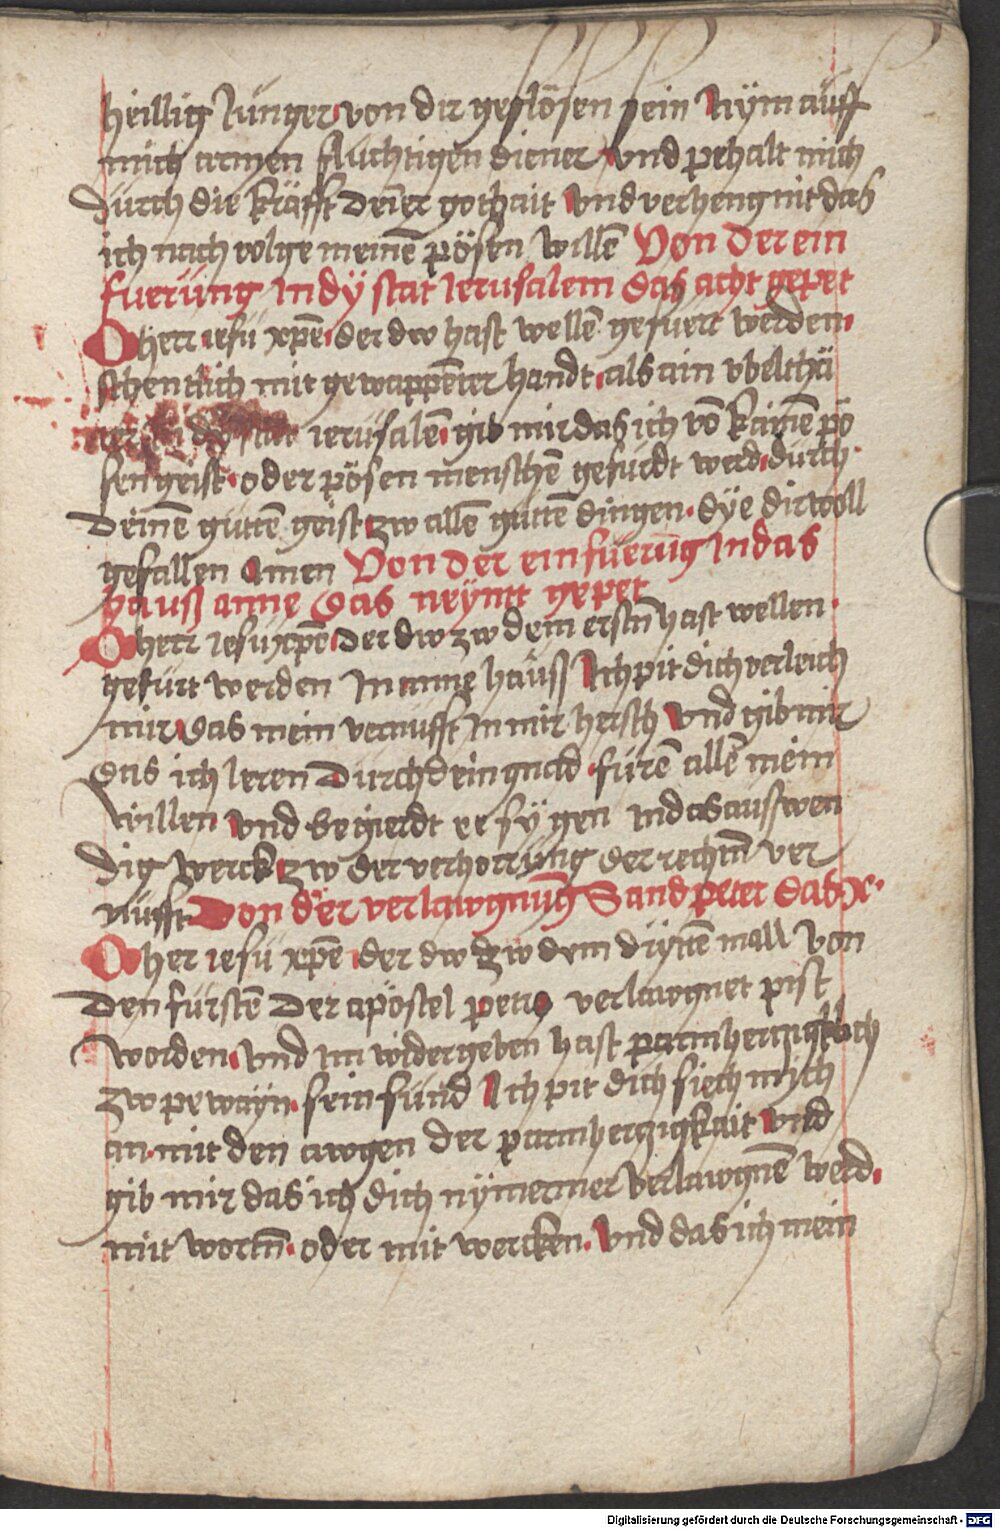 heillig Junger von dir geflösen sein Nym auff
mich armen fluchtigen diener vnd pehalt mich
durch die kräfft deiner gothait vnd verheng nit das
ich nach volge meinē pösen willē Von der ein
fuerung In dy stat Jerusalem das acht gepet
O herr iesu xp̄e der dw hast wellē gefuert werden
schentlich mit gewappēter handt als ain vbelthä
ter in dy stat ierusalē gib mir das ich vō kainē pö
sen geist oder pösen menschē gefurdt werd durch
deinē guttē geist zw allē guttē dingen dye dir woll
gefallen Amen Von der einfuerūg In das
hauß anne das neyntt gepet
O herr iesu xp̄e der dw zw dem erstn̄ hast wellen
gefurt werden In anne hauß Ich pit dich verleich
mir das mein vernufft In mir hersch vnd gib mir
das ich leren durch dein gnad furē allē meim
willen vnd begierdt ee sygen in das ausswen
dig werck zw der verhorrung der rechtn̄ ver
nufft Von der verlawgnūg Sand peter das x
O her iesu xp̄e der dw zw dem dryttē mall von
den furstē der apostel petro verlawgnet pist
worden vnd im widergeben hast parmhertzigklich
zw pewayn sein sünd Ich pit dich siech mych
an mit den awgen der parmhertzigkait vnd
gib mir das ich dich nymermer verlawgnē werd
mit wortn̄ oder mit wercken vnd das ich mein
Digitalisierung gefördert durch die Deutsche Forschungsgemeinschaft - DFG